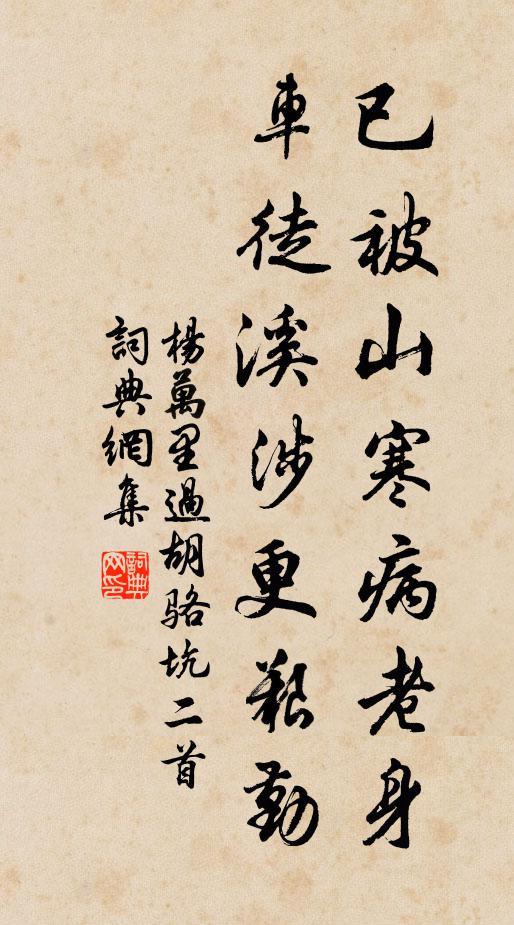 已被山寒病老身
車徒溪涉更艱勤
楊萬里過胡骆坑二首
詞典網集
詞典
网印